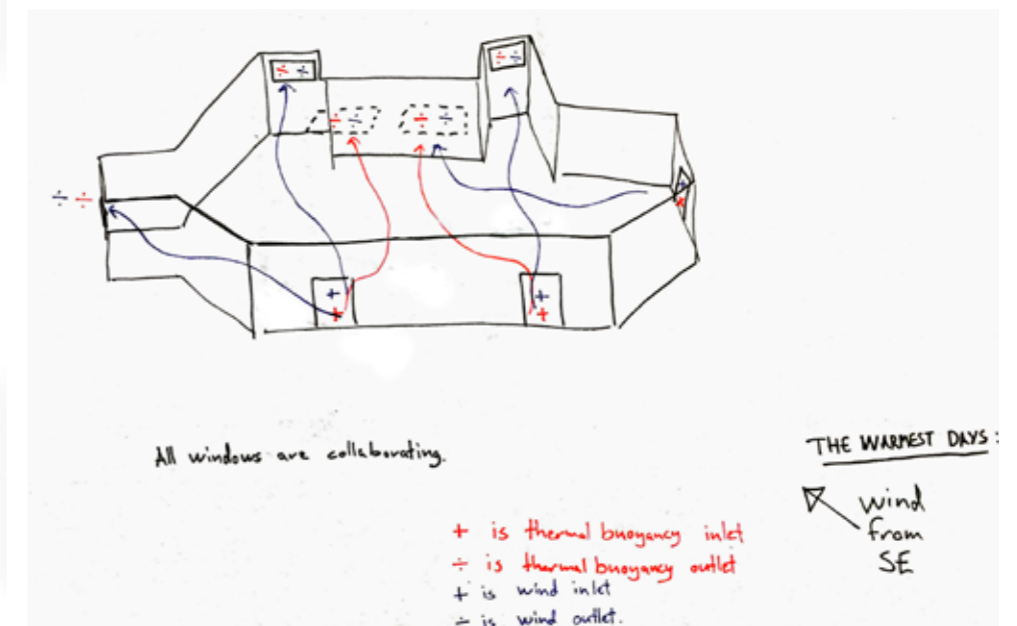 ÷ ÷
÷ ÷
÷ ÷
÷ ÷
÷ ÷
+
+
+
+
+
+
All windows are collaborating.
THE WARMEST DAYS:
wind
from
SE
+ is thermal buoyancy inlet
÷ is thermal buoyancy outlet
+ is wind inlet
÷ is wind outlet.